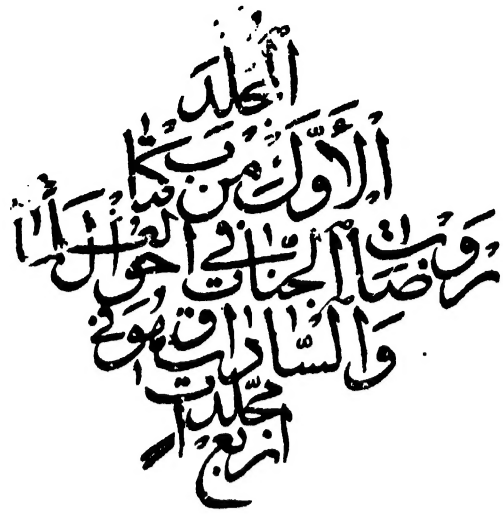 المجلد
الأوّل من كتاب
روضات الجنّات في أحوال العلماء
والسّادات وهو في
مجلّدات
أربع